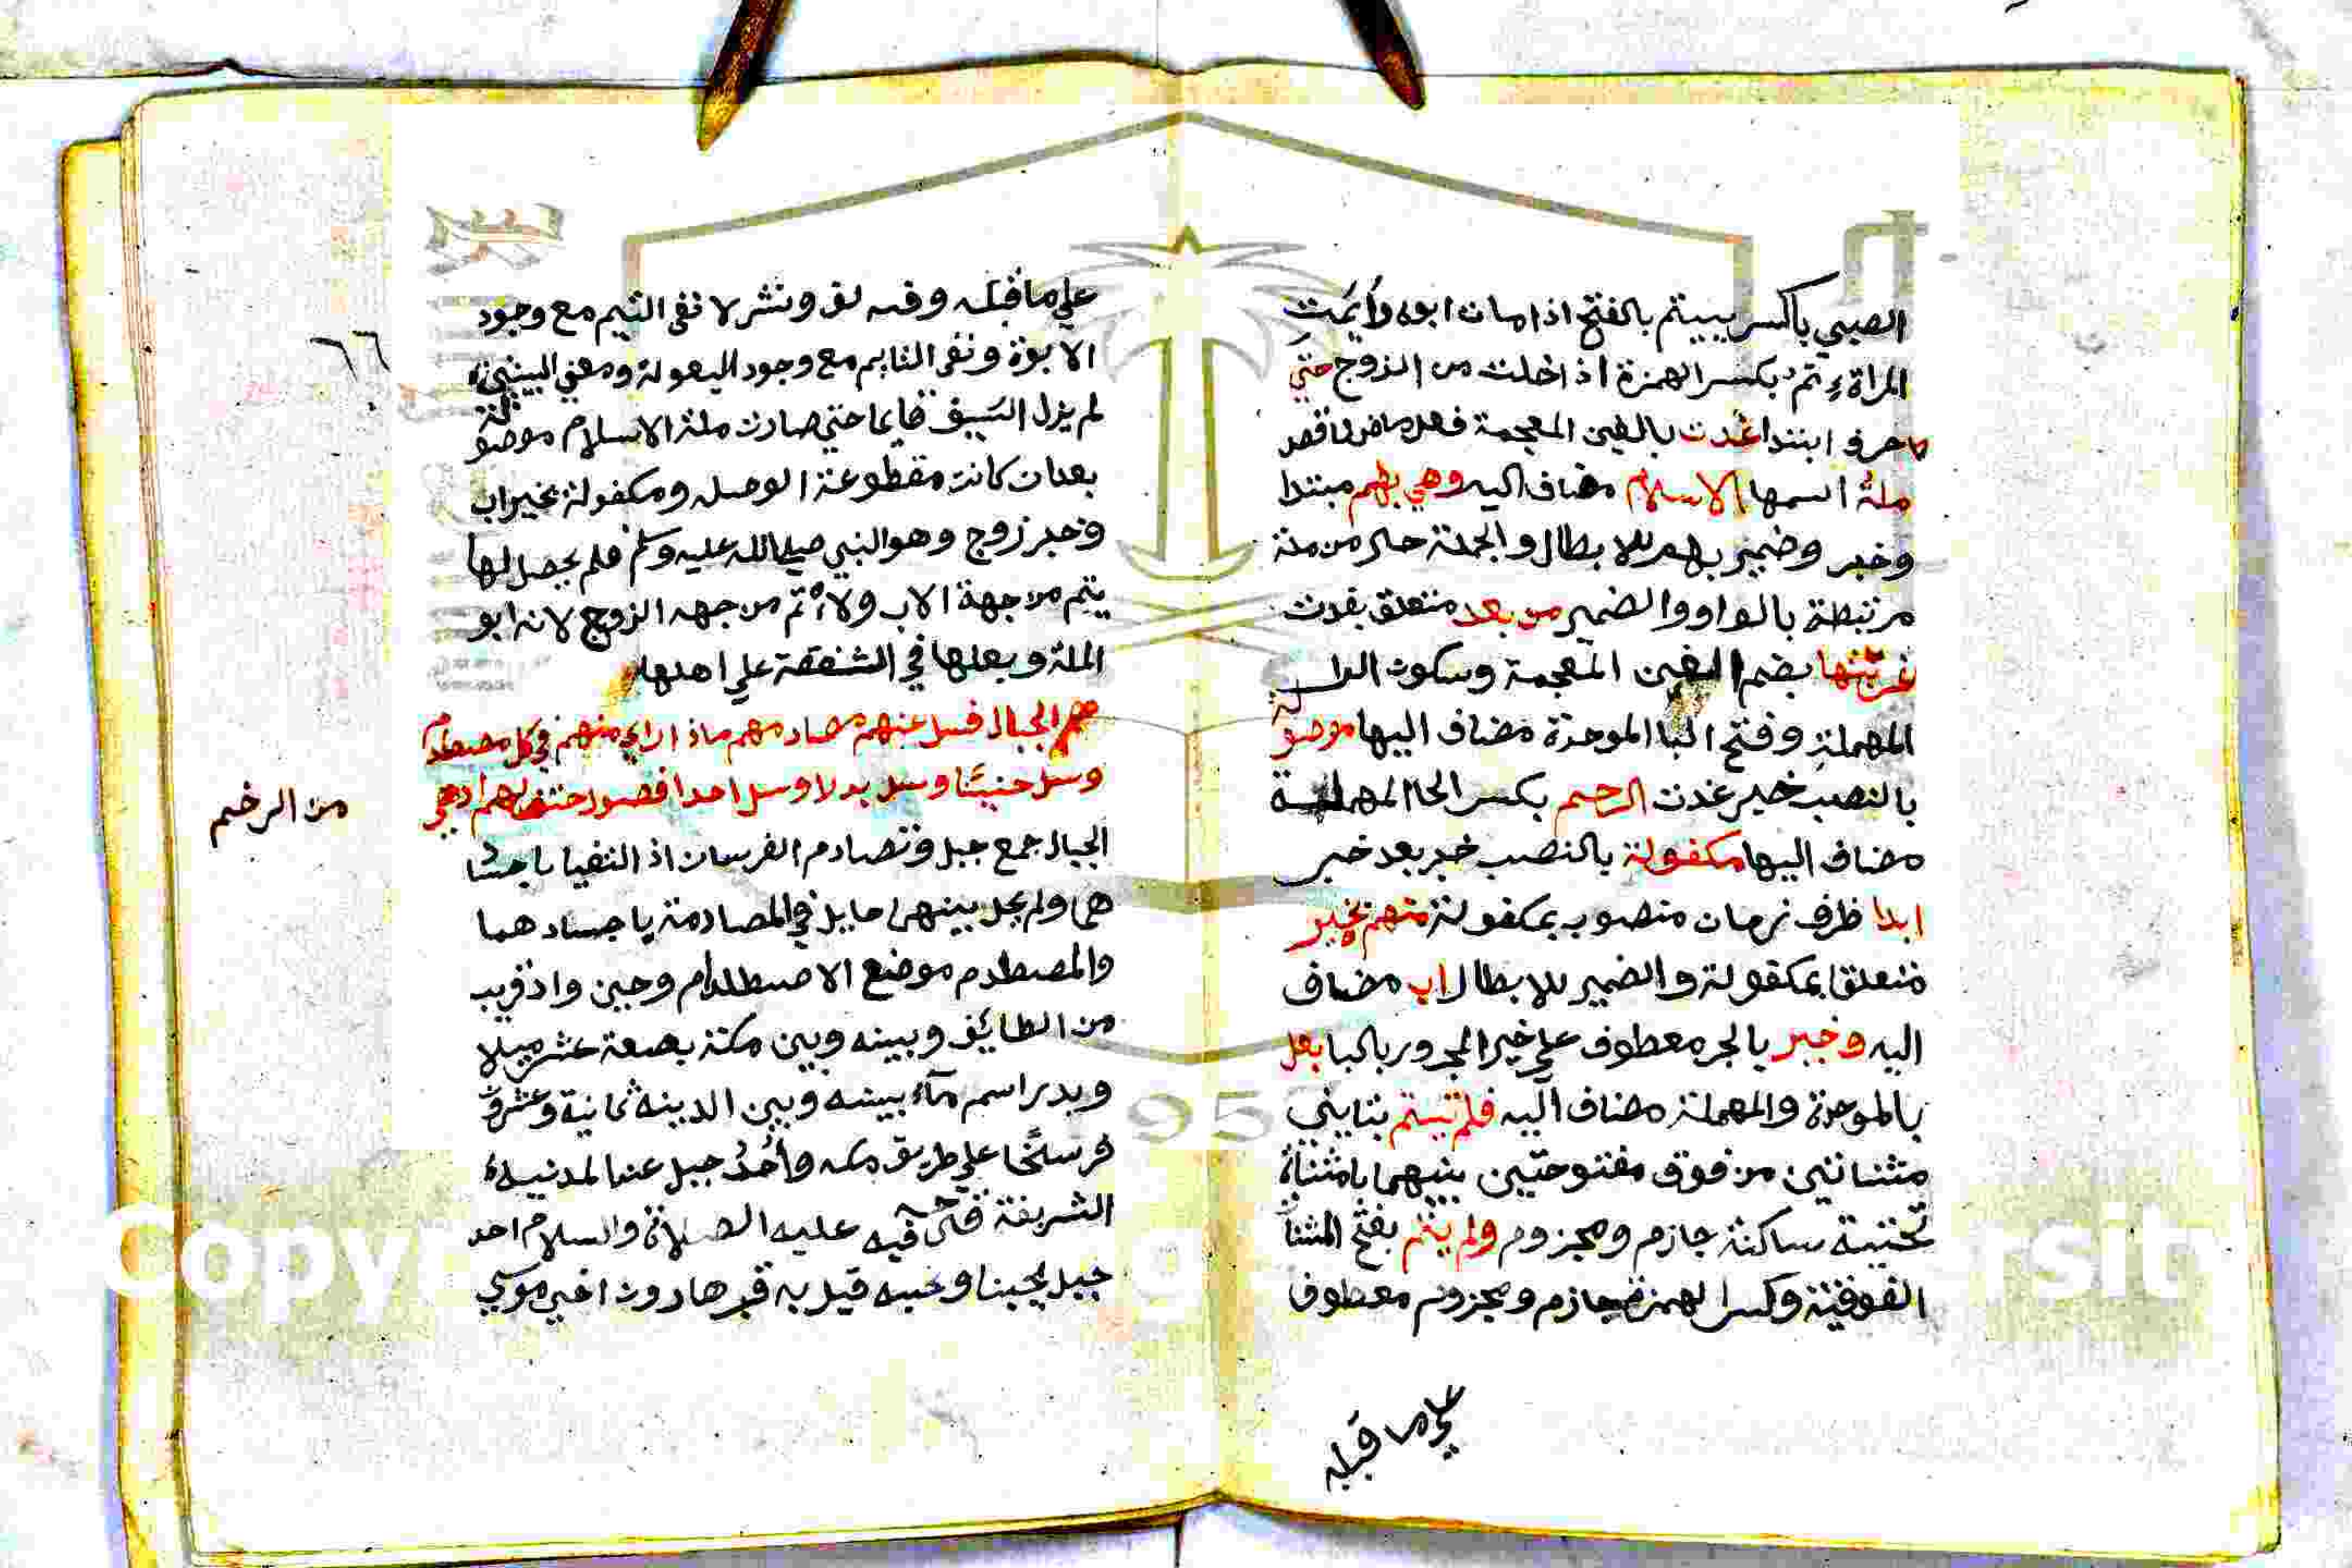 الصبي باكسر ييتم بالفتح اذا مات ابوه وأيمت
المراة ءتم بكسر الهمزة اذا خلت من الزوج حتي
حرف ابتدا غدت بالغين المعجمة فعل ماض ناقص
ملة اسمها الاسلام مضاف اليه وهي بهم مبتدا
وخبر وضمير بهم للابطال والجملة حال من ملة
مرتبطة بالواو والضمير من بعد متعلق بغدت
غربتها بضم الغين المعجمة وسكون الرا
المهملة وفتح البا الموحدة مضاف اليها موصولة
بالنصب خبر غدت الرحم بكسر الحا المهملة
مضاف اليها مكفولة بالنصب خبر بعد خبر
ابدا ظرف زمان منصوب بمكفولة منهم بخير
متعلق بمكفولة والضمير للابطال اب مضاف
اليه وخير بالجر معطوف علي خير المجرور بالبا بعل
بالموحدة والمهملة مضاف اليه فلم تيتم بتايني
مثناتين من فوق مفتوحتين بينهما يا مثناة
تحتية ساكنة جازم ومجزوم ولم يتم بفتح المثناة
الفوقية وكسر الهمزة جازم ومجزوم معطوف
علي ما قبله
علي ما قبله وفيه لف ونشر لا نفي التيم مع وجود
الابوة ونفي التايم مع وجود البعولة ومعني البيتين
لم يزل السيف قايما حتي صارت ملة الاسلام موصولة
بعد ان كانت مقطوعة الوصل ومكفولة بخير اب
وخير زوج وهو النبي صلي الله عليه وسلم فلم يحصل لها
يتم من جهة الاب ولا أتم من جهه الزوج لانه ابو
الملة وبعلها في الشفقة علي اهلها
٦٦
هم الجبال فسل عنهم مصادمهم ماذا راي منهم في كل مصطدم
وسل حنينا وسل بدرا وسل احدا فصول حتف لهم ادهي
من الوخم
الجبال جمع جبل وتصادم الفرسان اذ التقيا باجسا
هما ولم يحل بينهما حايل في المصادمة باجسادهما
والمصطدم موضع الاصطدام وحنين واد قريب
من الطايف وبينه وبين مكة بضعة عشر ميلا
وبدر اسم ماء بينه وبين المدينه ثمانية وعشرون
فرسخا علي طريق مكه وأحد جبل عند المدنية
الشريفة قال فيه عليه الصلاة والسلام احد
جبل يحبنا ونحبه قيل به قبر هارون اخي موسي